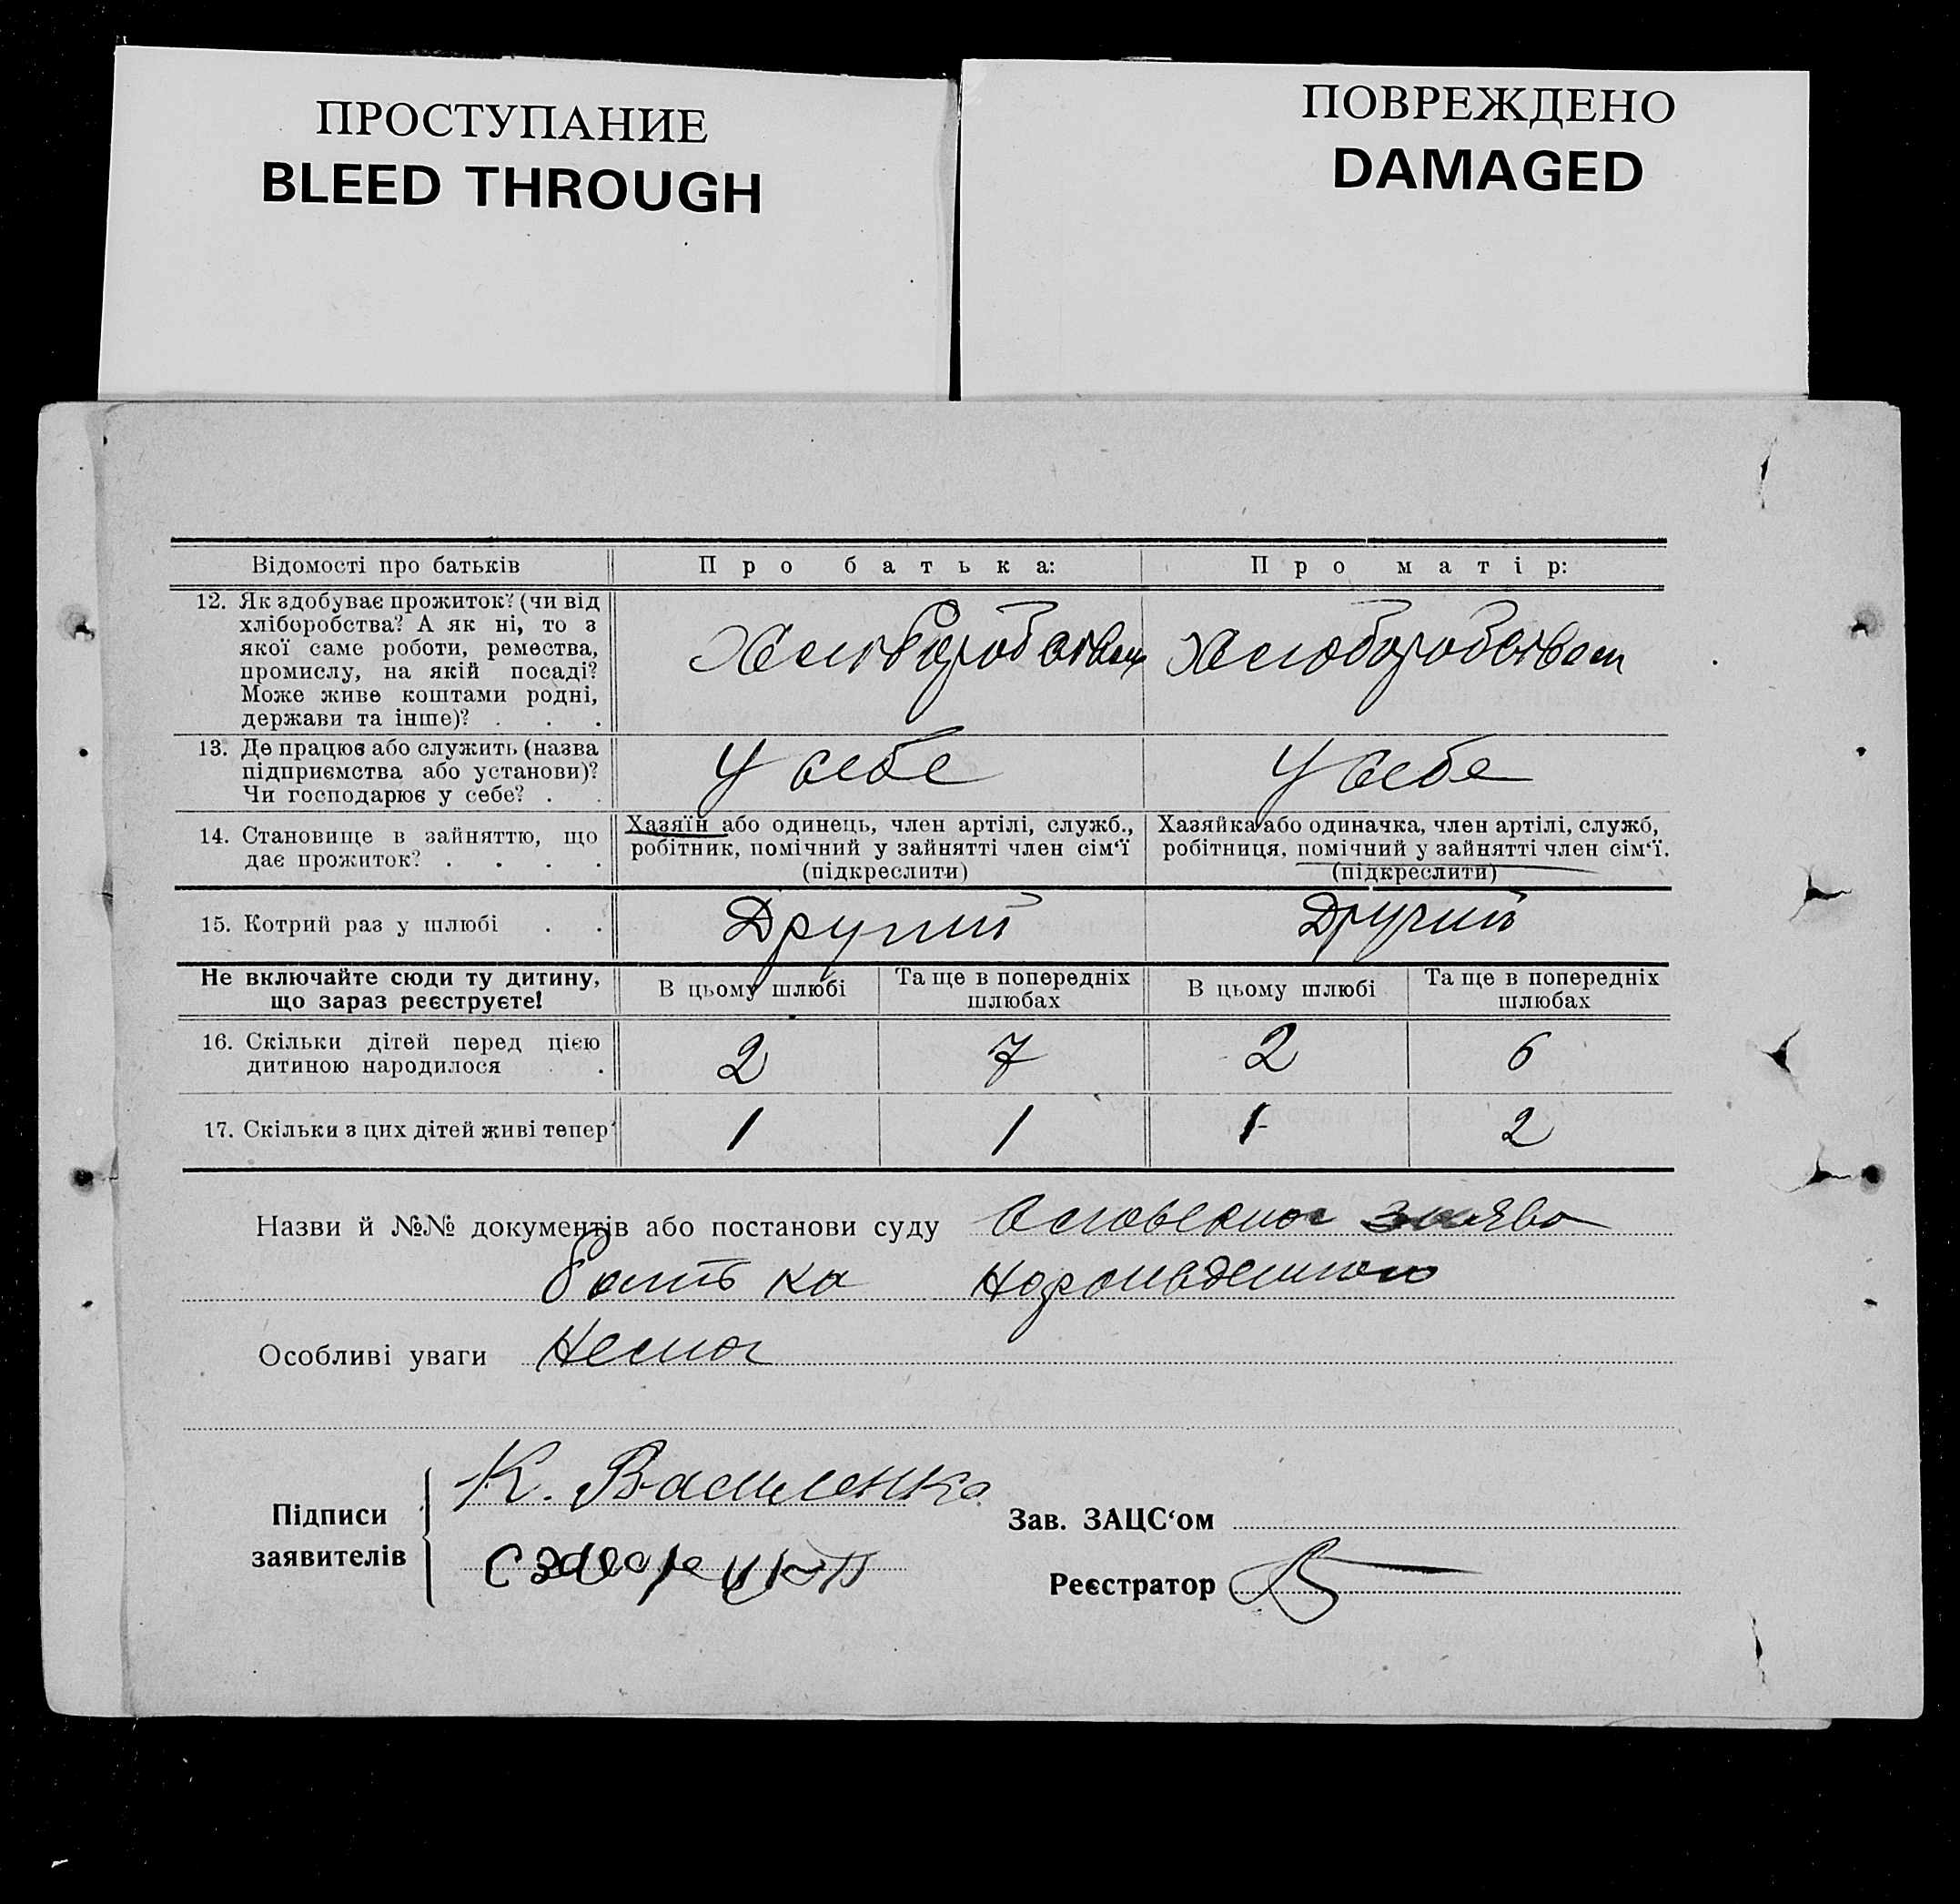 ПРОСТУПАНИЕ
BLEED THROUGH
ПОВРЕЖДЕНО
DAMAGED
Відомості про батьків
Про батька:
Про матір:
12. Як здобуває прожиток? (чи від
хліборобства? А як ні, то з
якої саме роботи, ремества,
промислу, на якій посаді?
Може живе коштами родні,
держави та інше)? . . .
Хліборобством
Хліборобством
13. Де працює або служить (назва
підприємства або установи)?
Чи господарює у себе? . .
У себе
У себе
14. Становище в зайняттю, що
дає прожиток? . . . .
Хазяїн або одинець, член артілі, служб.,
робітник, помічний у зайнятті член сім‘ї
(підкреслити)
Хазяйка або одиначка, член артілі, служб,
робітниця, помічний у зайнятті член сім‘ї.
(підкреслити)
15. Котрий раз у шлюбі . .
Другий
Другий
Не включайте сюди ту дитину,
що зараз реєструєте!
В цьому шлюбі
Та ще в попередніх
шлюбах
В цьому шлюбі
Та ще в попередніх
шлюбах
16. Скільки дітей перед цією
дитиною народилося . .
2 7 2 6
17. Скільки з цих дітей живі тепер
1 1 1 2
Назви й №№ документів або постанови суду Словесна заява
батька
Особливі уваги Нема
Підписи
заявителів
К. Василенко
Зав. ЗАЦС‘ом
Реєстратор